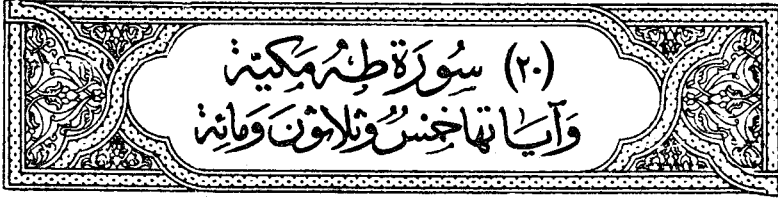 (٢٠) سُورَة طٰهٰ مَكيّة
وَآيَاتها خمسٌ وثلاثونَ وَمائة